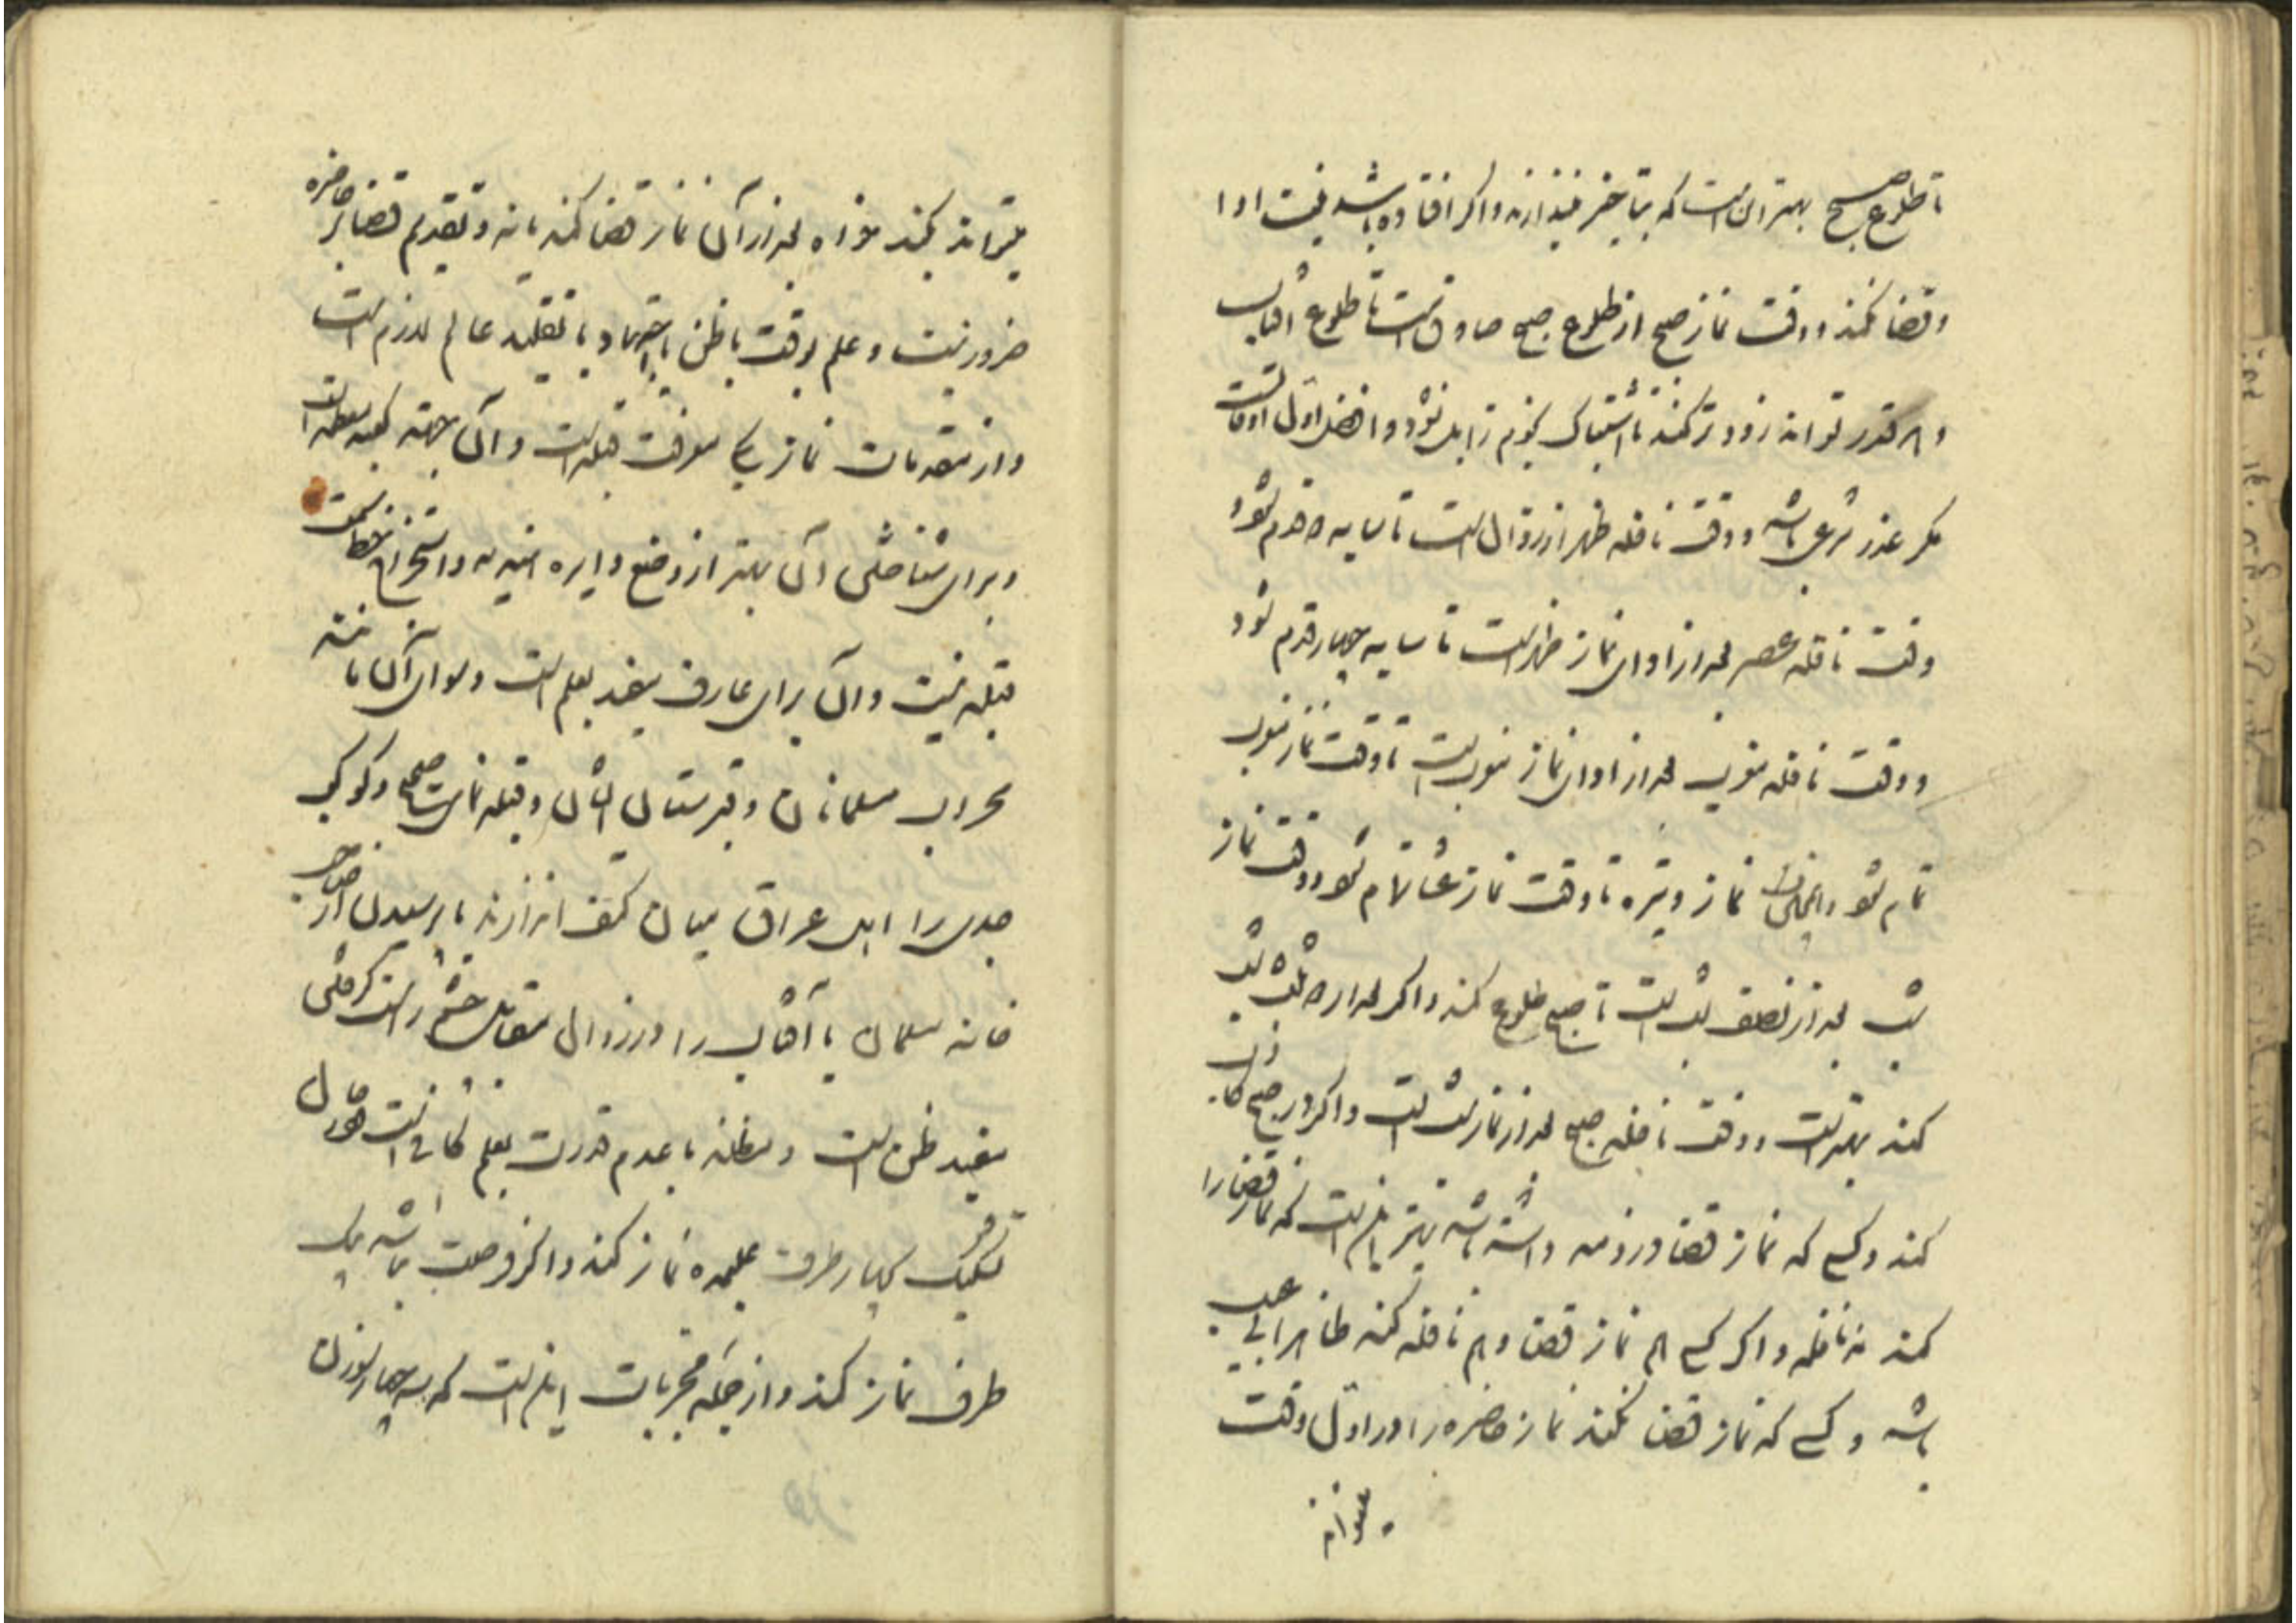 تا طلوع صبح بهتر آنست که بتأخیر نیندازند و اگر افتاده باشد نیت ادا
و قضا نکند و وقت نماز صبح از طلوع صبح صادق است تا طلوع آفتاب
و هر قدر تواند زودتر کند تا اشتباک نجوم زایل نشود و افضل اول اوقات
مگر عذر شرعی باشد و وقت نافله ظهر از زوال است تا سایه دو قدم شود
وقت نافله عصر بعد از ادای نماز ظهر است تا سایه چهار قدم شود
و وقت نافله مغرب بعد از ادای نماز مغرب است تا وقت نماز مغرب
تمام شود و همچنان نماز وتیره تا وقت نماز عشا تمام شود و وقت نماز
شب بعد از نصف شب است تا صبح طلوع کند و اگر بعد از دو ثلث شب
کند بهتر است و وقت نافله صبح بعد از نماز شب است و اگر در صبح کاذب
کند و کسی که نماز قضا در ذمه داشته باشد بهتر این است که نماز قضا را
کند نه نافله و اگر کسی هم نماز قضا و هم نافله کند ظاهرا بی عیب
باشد و کسی که نماز قضا نکند نماز حاضره را در اول وقت
میتواند
میتواند بکند خواه بعد از آن نماز قضا کند یا نه و تقدیم قضا بر حاضره
ضرور نیست و علم بوقت یا ظن باجتهاد یا تقلید عالم لازم است
و از مقدمات نماز یکی معرفت قبله است و آن جهة کعبه معظمه است
و برای شناختن آن بهتر از وضع دایره هندیه و استخراج خط سمت
قبله نیست و آن برای عارف مفید بعلم است و سوای آن مانند
محراب مسلمانان و قبرستان ایشان و قبله نمای صحیح و کوکب
جدی را اهل عراق میان کتف اندازند یا پرسیدن از صاحب
خانه مسلمان یا آفتاب را در زوال مقابل چشم راست گرفتن
مفید ظن است و مظنه با عدم قدرت بعلم کافی است و در حال
تحیر یک بچهار طرف علیحده نماز کند و اگر فرصت نباشد بیک
طرف نماز کند و از جمله مجربات این است که سه چهار سوزن